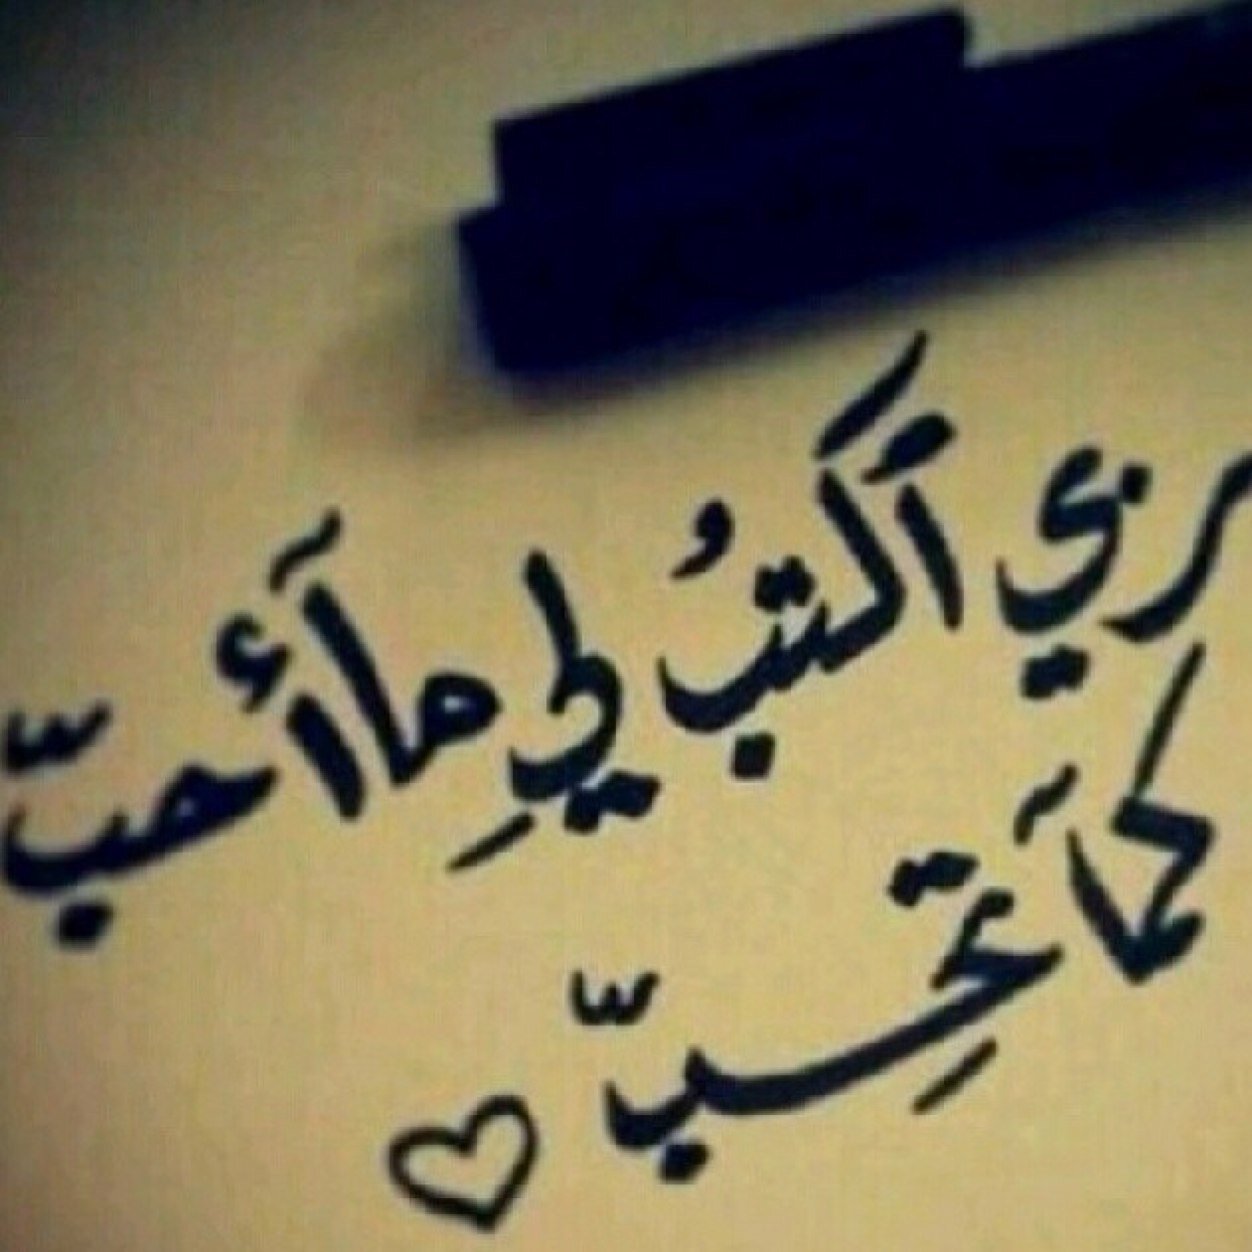 ربي أكتبُ لِي مَا أحبّ
كمَا تحِبّ